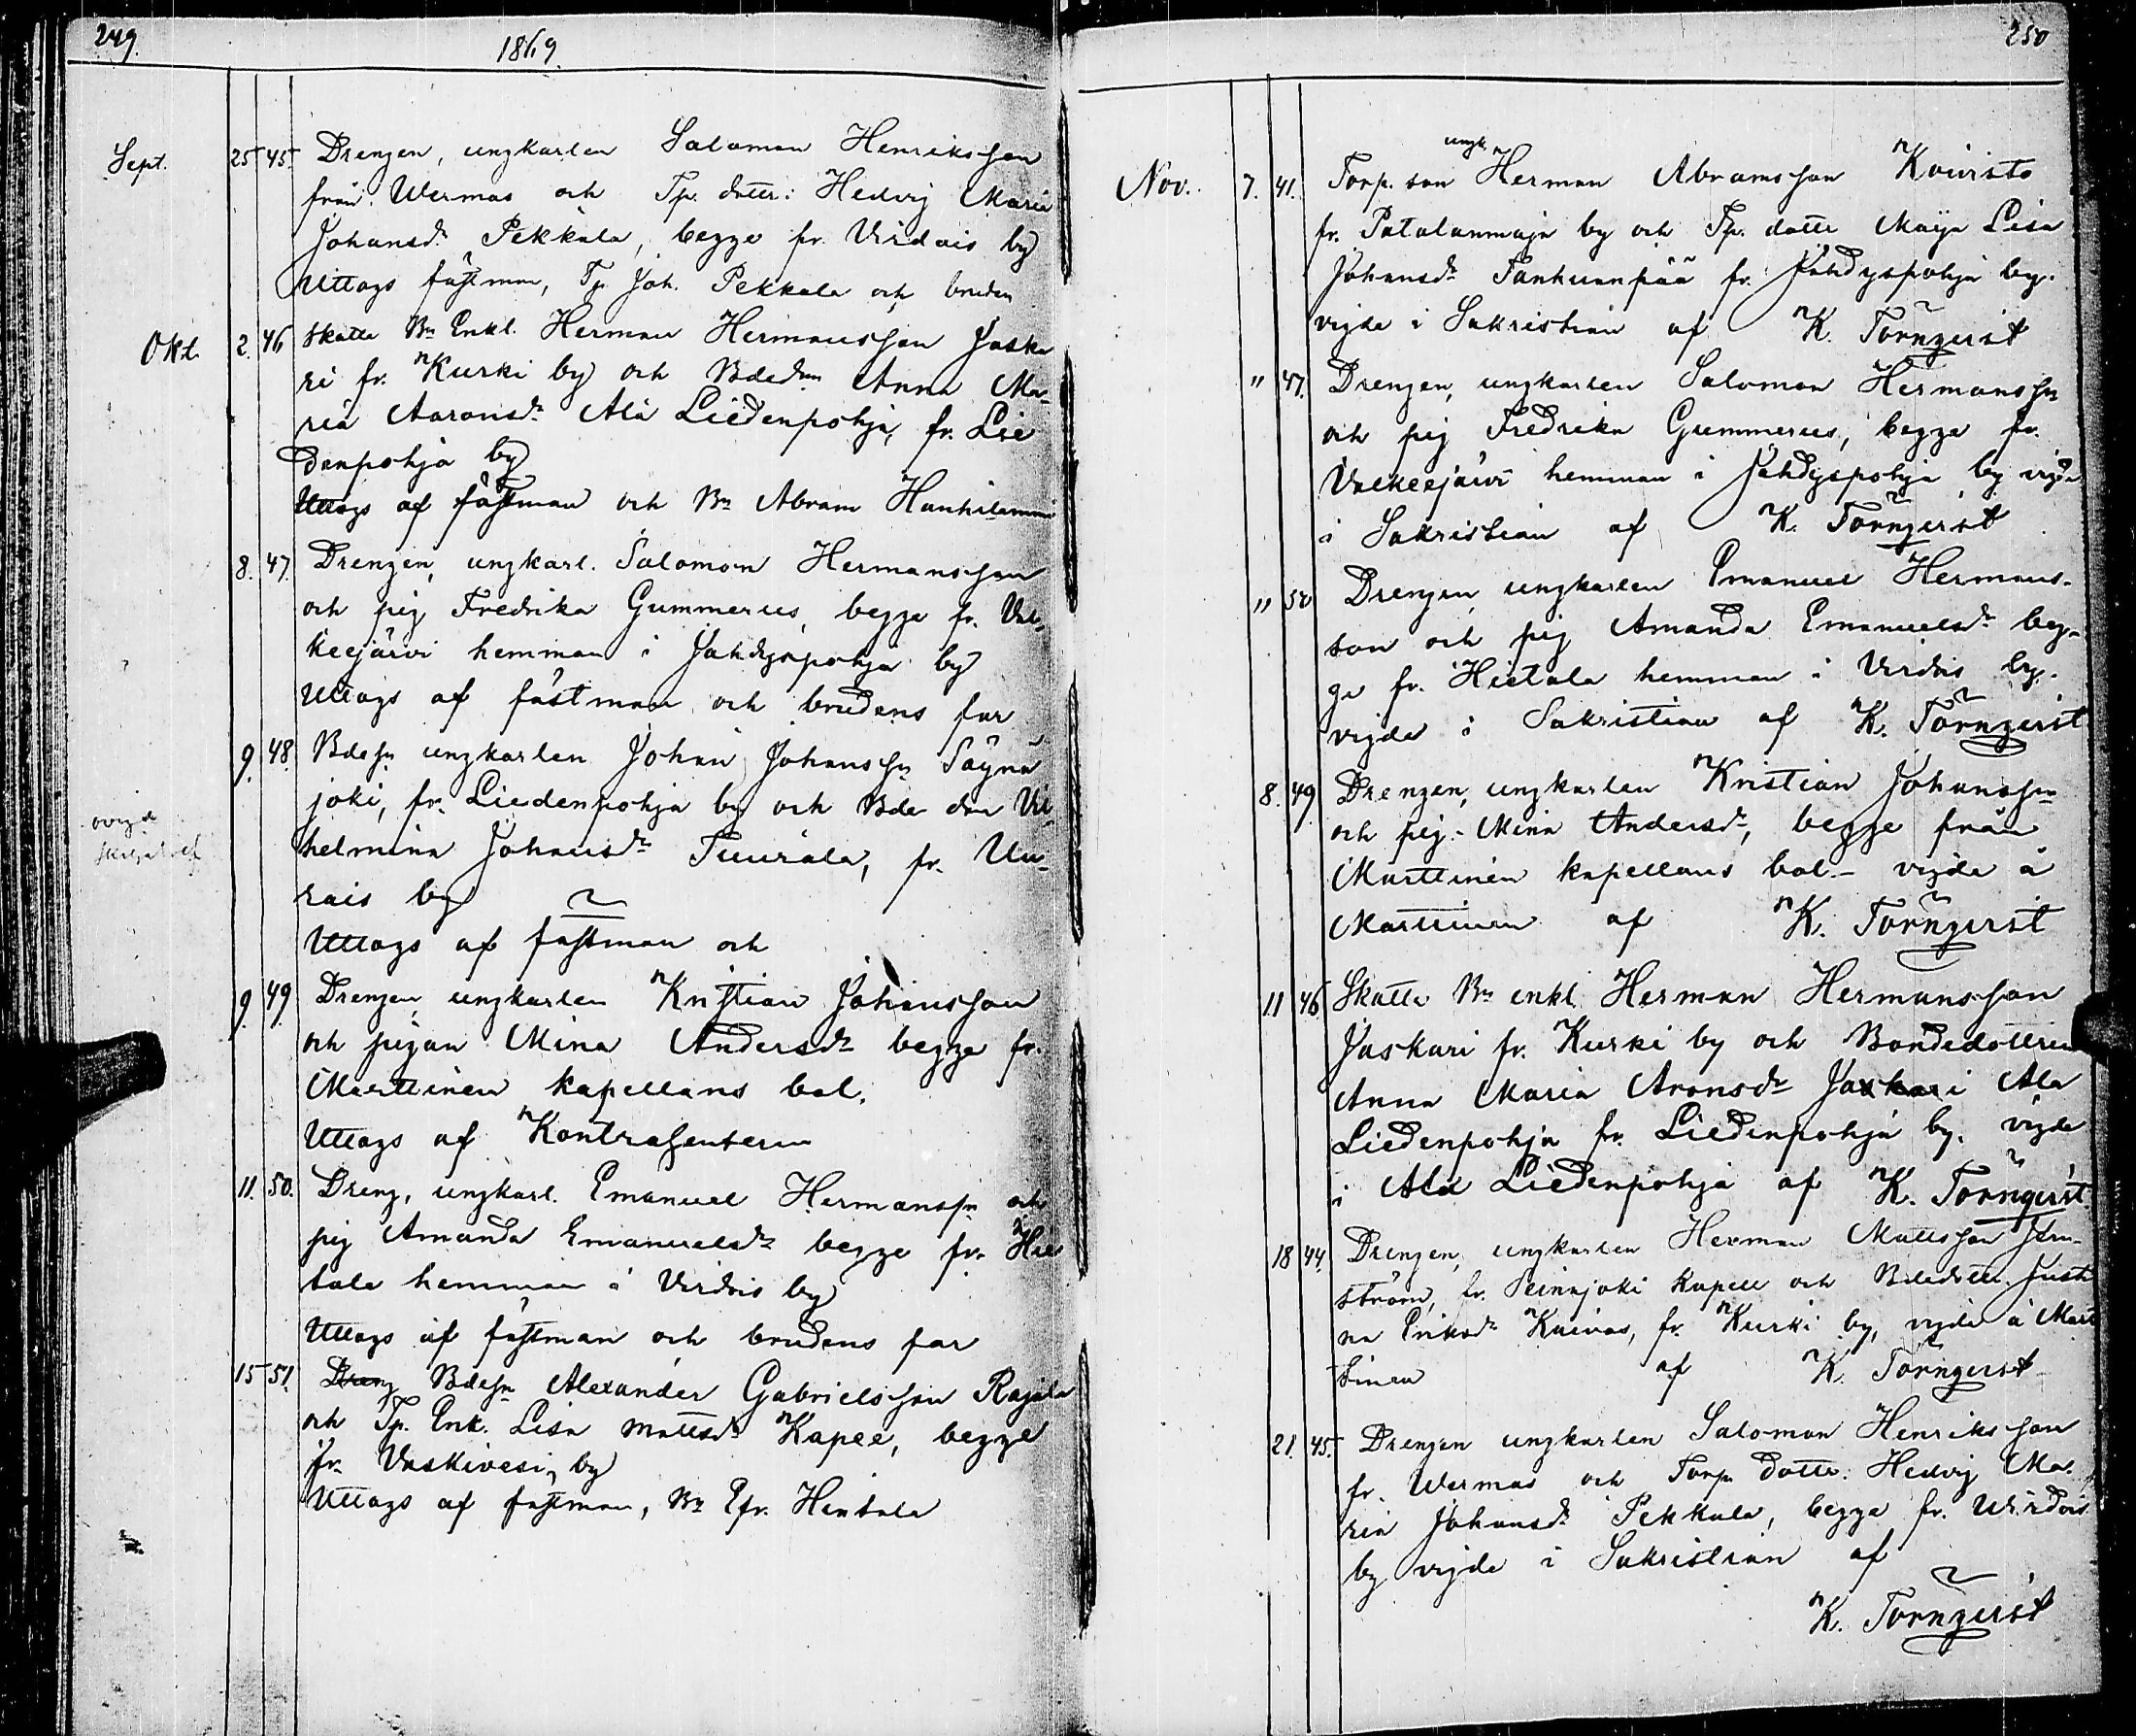 249.
1869.
Sept. 25 45 Drengen, ungkarlen Salomon Henriksson
från Wermas och Tp. dottr: Hedvig Maria
Johansdr Pekkala, begge fr. Virdois by
Uttogs af fästman, Tp. Joh. Pekkala och bruden
Okt. 2. 46 Skatte Bn Enkl. Herman Hermansson Jaska
ri fr. Kurki by och Bdedrn Anna Ma-
ria Aaronsdr Ala Liedenpohja, fr. Lie
denpohja by
Uttogs af fästman och Bn Abram Hanhilammi
8. 47. Drengen, ungkarl. Salomon Hermansson
och pig Fredrika Gummerus, begge fr. Val-
keejärvi hemman i Jähdyspohja by
Uttogs af fästman och brudens far
9. 48. Bdesn ungkarlen Johan Johanssn Säynä
joki, fr. Liedenpohja by och Bde drn Vil-
helmina Johansdr Tuurala, fr. Uu-
rais by
ovigde
Uttogs af fästman och
9. 49. Drengen, ungkarlen Kristian Johansson
och pigan Mina Andersdr begge fr.
Marttinen kapellans bol.
Uttogs af Kontrahenterna
11. 50. Dreng, ungkarl. Emanuel Hermanssn och
pig Amanda Emanuelsdr begge fr. Hie
tala hemman i Virdois by
Uttogs af fästman och brudens far
15 51. Dreng Bdesn Alexander Gabrielsson Rajala
och Tp. Enk. Lisa Mattsdr Kapee, begge
fr. Vaskivesi by
Uttogs af fästman, Bn Efr. Hentala
250
ungk.
Nov. 7. 41. Torp. son Herman Abramsson Koivisto
fr. Patalanmaja by och Tp. dottr Maija Lisa
Johansdr Tanhuanpää fr. Jähdyspohja by.
vigde i Sakristian af K. Törnqvist
" 47. Drengen, ungkarlen Salomon Hermanssn
och pig Fredrika Gummerus, begge fr.
Valkeejärvi hemman i Jähdyspohja by vigde
i Sakristian af K. Törnqvist
" 50 Drengen, ungkarlen Emanuel Hermans-
son och pig Amanda Emanuelsdr beg-
ge fr. Hietala hemman i Virdois by.
vigde i Sakristian af K. Törnqvist
8. 49 Drengen, ungkarlen Kristian Johanssn
och pig. Mina Andersdr, begge från
Marttinen kapellans bol - vigde å
Marttinen af K. Törnqvist
11 46 Skatte Bn enkl. Herman Hermansson
Jaskari fr. Kurki by och Bondedottren
Anna Maria Aronsdr Jaskari Ala
Liedenpohja fr. Liedenpohja by. vigde
i Ala Liedenpohja af K. Törnqvist
18 44. Drengen, ungkarlen Herman Mattsson Jern-
ström, fr. Peinäjoki Kapell och Bdedottr. Justi
na Eriksdr Kuivas, fr. Kurki by, vigde å Mart
tinen af K. Törnqvist
21. 45. Drengen ungkarlen Salomon Henriksson
fr. Wermas och Torp. dottr: Hedvig Ma-
ria Johansdr Pekkala, begge fr. Wirdois
by vigde i Sakristian af
K. Törnqvist